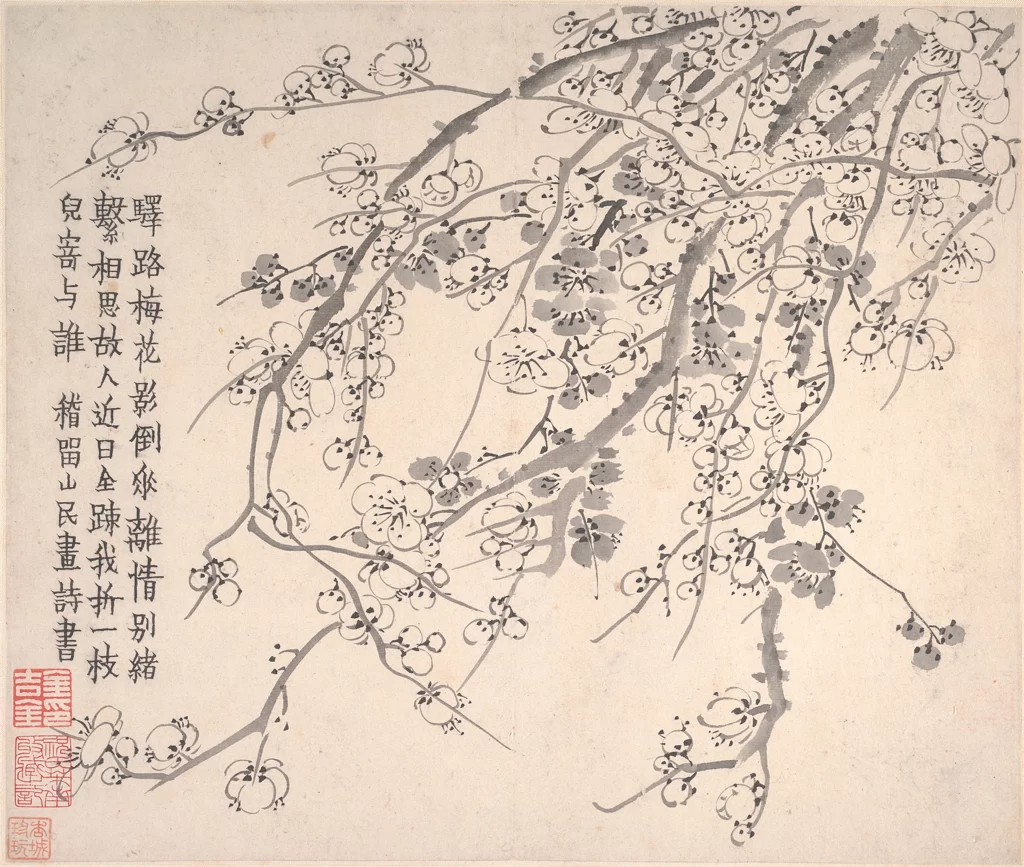 驛路梅花影倒垂離情別緒
繫相思故人近日全疎我折一枝
兒寄与誰 稽留山民畫詩書